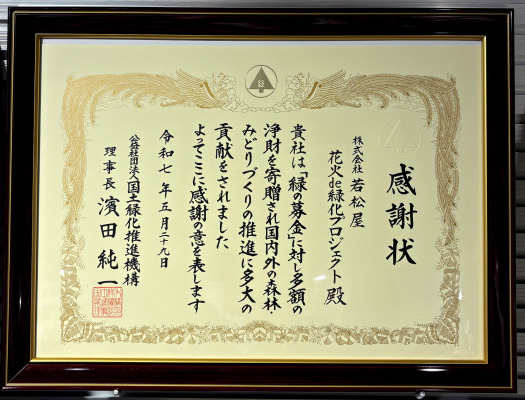 感謝状
株式会社 若松屋
花火de緑化プロジェクト 殿
貴社は「緑の募金」に対し多額の
浄財を寄贈され国内外の森林・
みどりづくりの推進に多大の
貢献をされました
よってここに感謝の意を表します
令和七年五月二十九日
公益社団法人 国土緑化推進機構
理事長 濱田純一